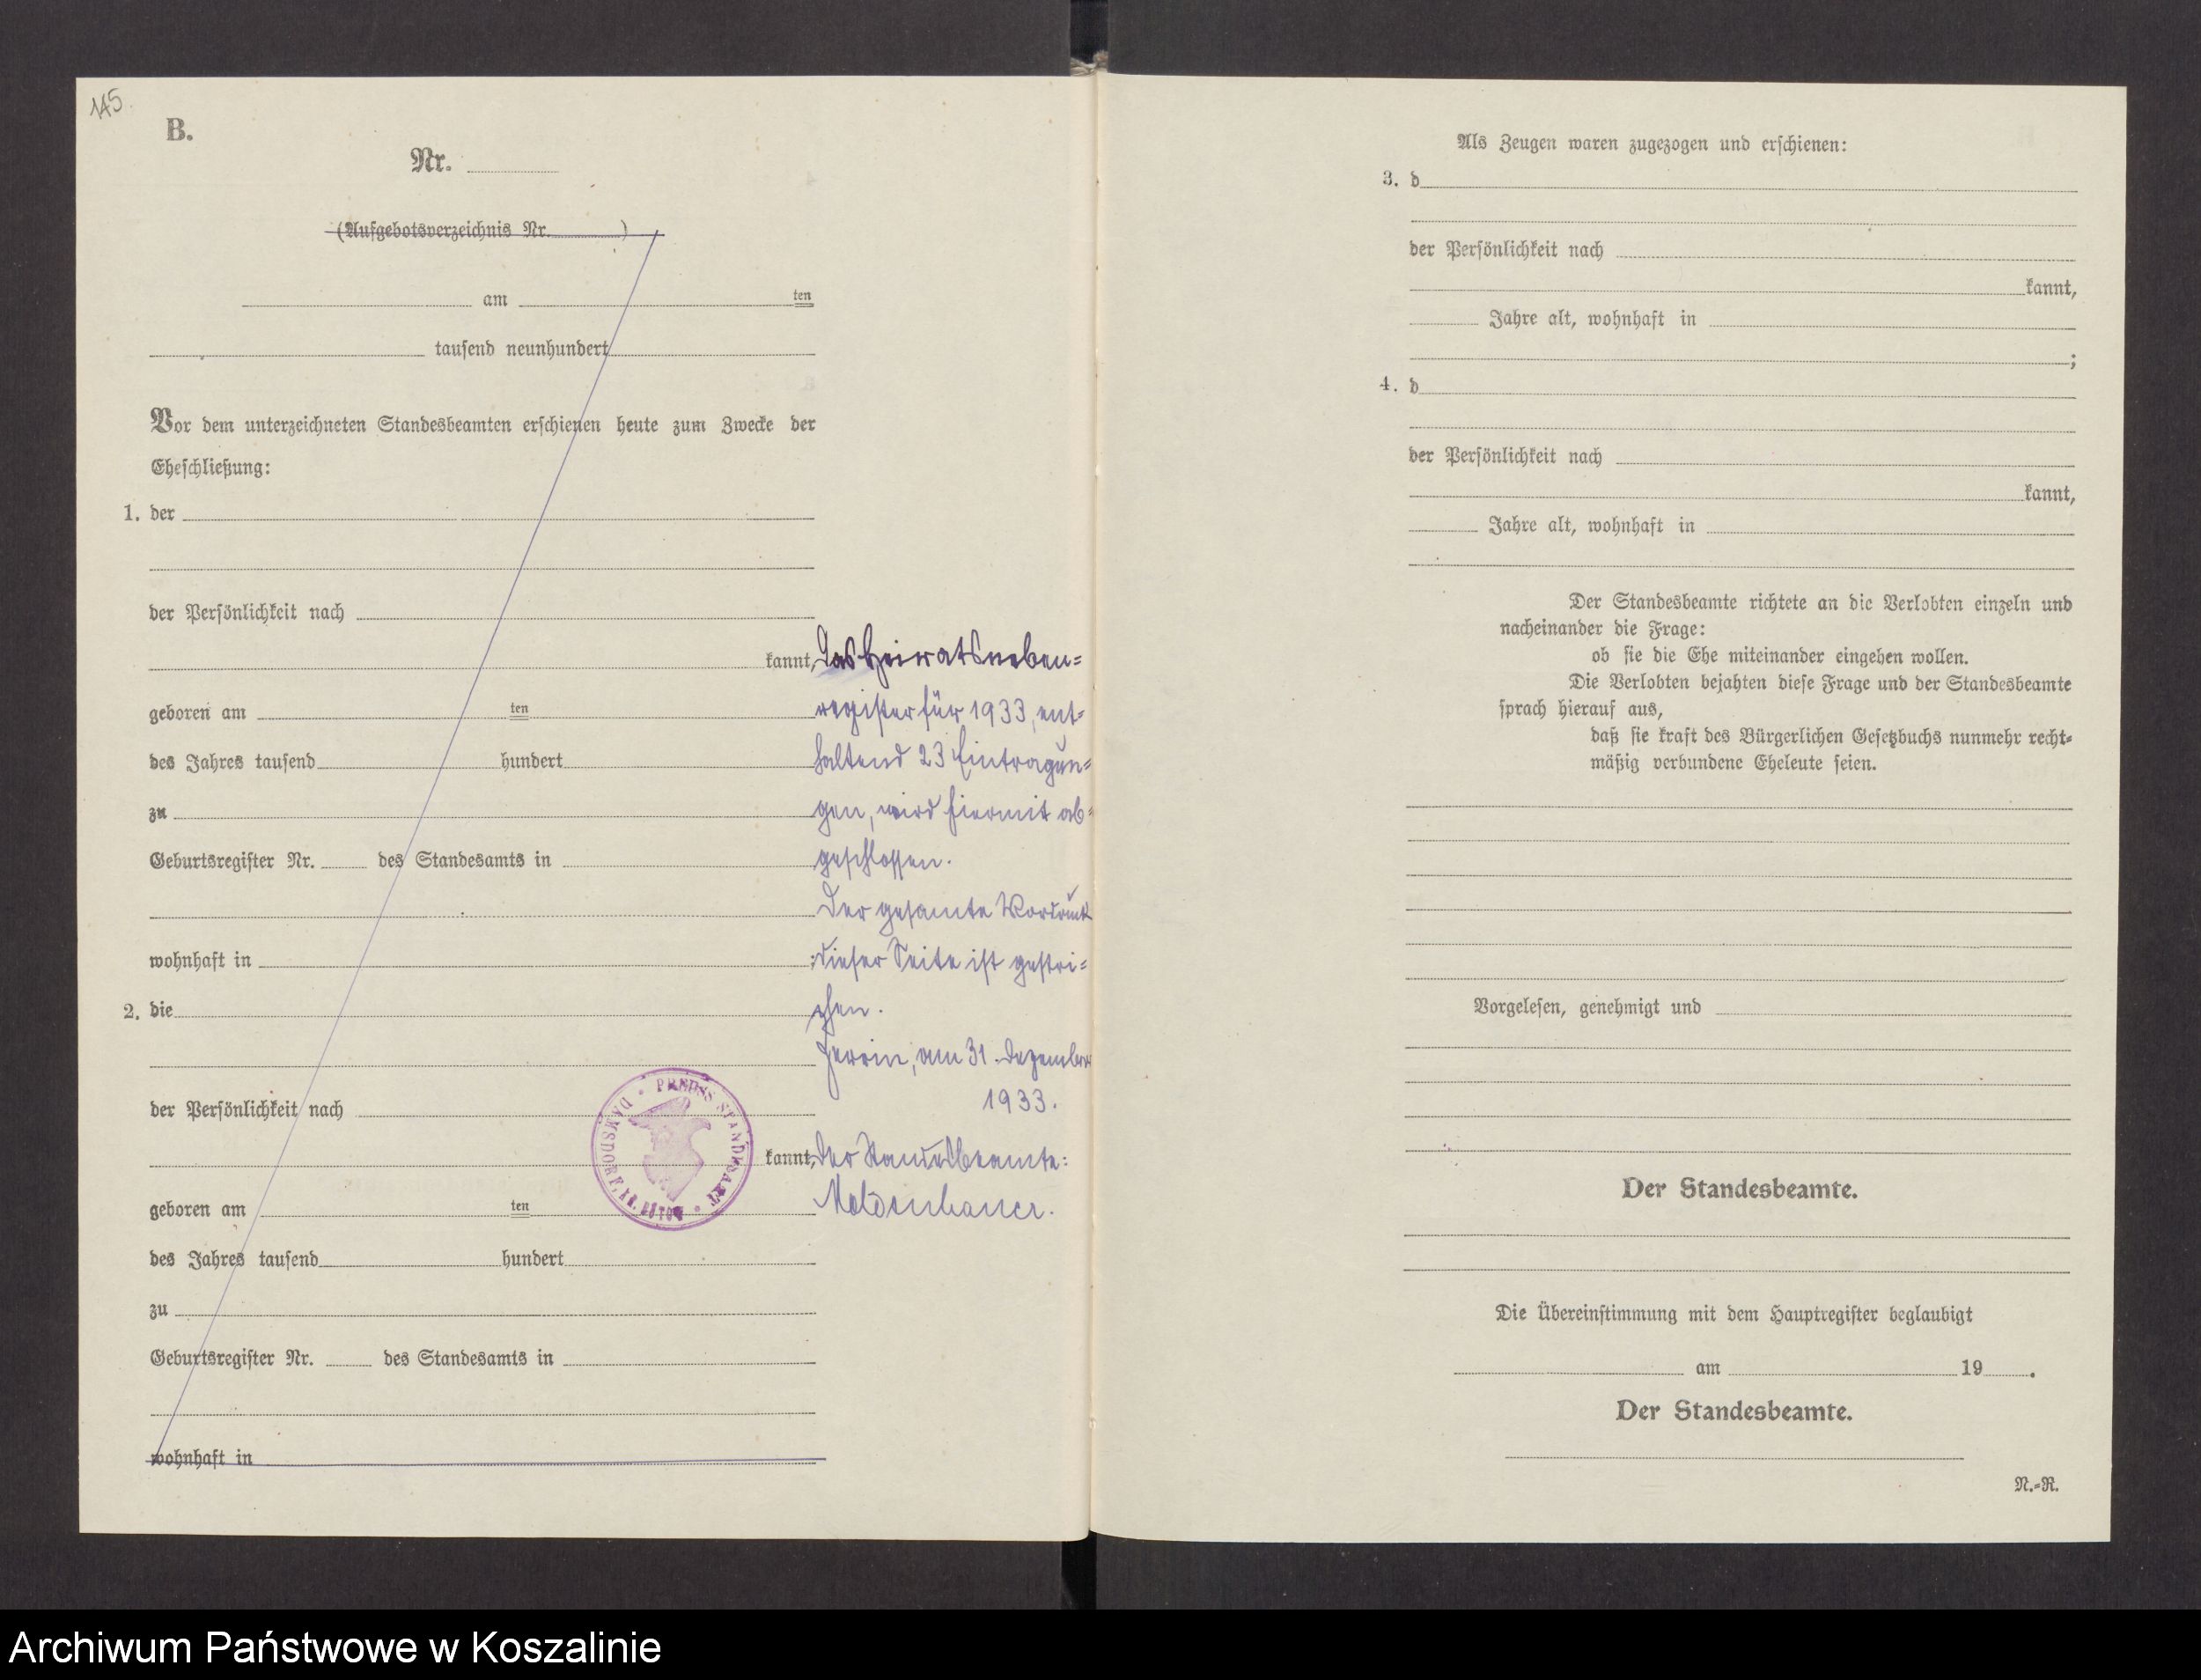 145.
B.
Nr.
(Aufgebotsverzeichnis Nr. )
am ten
tausend neunhundert
Vor dem unterzeichneten Standesbeamten erschienen heute zum Zwecke der
Eheschließung:
1. der
der Persönlichkeit nach
kannt,
geboren am ten
des Jahres tausend hundert
zu
Geburtsregister Nr. des Standesamts in
wohnhaft in
2. die
der Persönlichkeit nach
kannt,
geboren am ten
des Jahres tausend hundert
zu
Geburtsregister Nr. des Standesamts in
wohnhaft in
Das Heiratsneben=
register für 1933, ent=
haltend 23 Eintragun=
gen, wird hiermit ab=
geschlossen.
Der gesamte Vordruck
dieser Seite ist gestri=
chen.
am 31. Dezember
1933.
Der Standesbeamte:
Moldenhauer.
PREUSS. STANDESAMT
DAMSDORF, KR. BÜTOW
Als Zeugen waren zugezogen und erschienen:
3. d
der Persönlichkeit nach
kannt,
Jahre alt, wohnhaft in
;
4. d
der Persönlichkeit nach
kannt,
Jahre alt, wohnhaft in
Der Standesbeamte richtete an die Verlobten einzeln und
nacheinander die Frage:
ob sie die Ehe miteinander eingehen wollen.
Die Verlobten bejahten diese Frage und der Standesbeamte
sprach hierauf aus,
daß sie kraft des Bürgerlichen Gesetzbuchs nunmehr recht=
mäßig verbundene Eheleute seien.
Vorgelesen, genehmigt und
Der Standesbeamte.
Die Übereinstimmung mit dem Hauptregister beglaubigt
am 19 .
Der Standesbeamte.
N.=R.
Archiwum Państwowe w Koszalinie